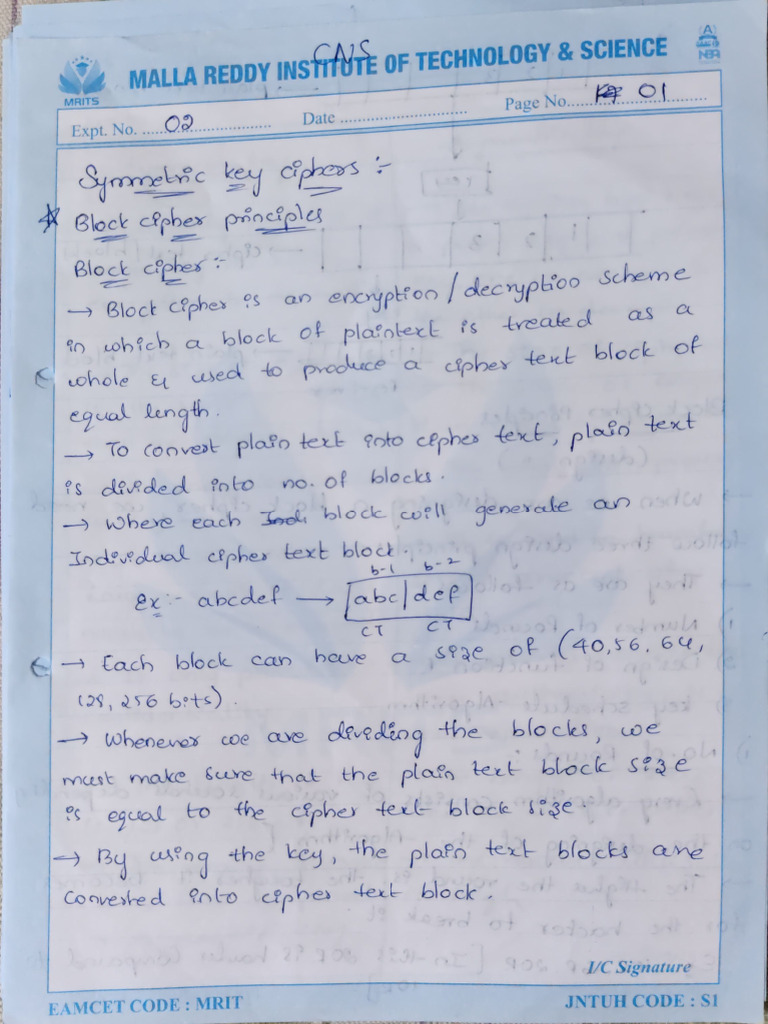 CNS
MALLA REDDY INSTITUTE OF TECHNOLOGY & SCIENCE
MRITS
NBA
Expt. No. 02 Date Page No. 01
Symmetric key ciphers :-
Block cipher principles
Block cipher :-
→ Block cipher is an encryption / decryption scheme
in which a block of plaintext is treated as a
whole & used to produce a cipher text block of
equal length.
→ To convert plain text into cipher text, plain text
is divided into no. of blocks.
→ Where each block will generate an
Individual cipher text block.
b-1 b-2
Ex :- abcdef → abc | def
CT CT
→ Each block can have a size of (40, 56, 64,
128, 256 bits).
→ Whenever we are dividing the blocks, we
must make sure that the plain text block size
is equal to the cipher text block size.
→ By using the key, the plain text blocks are
converted into cipher text block.
I/C Signature
EAMCET CODE : MRIT JNTUH CODE : S1